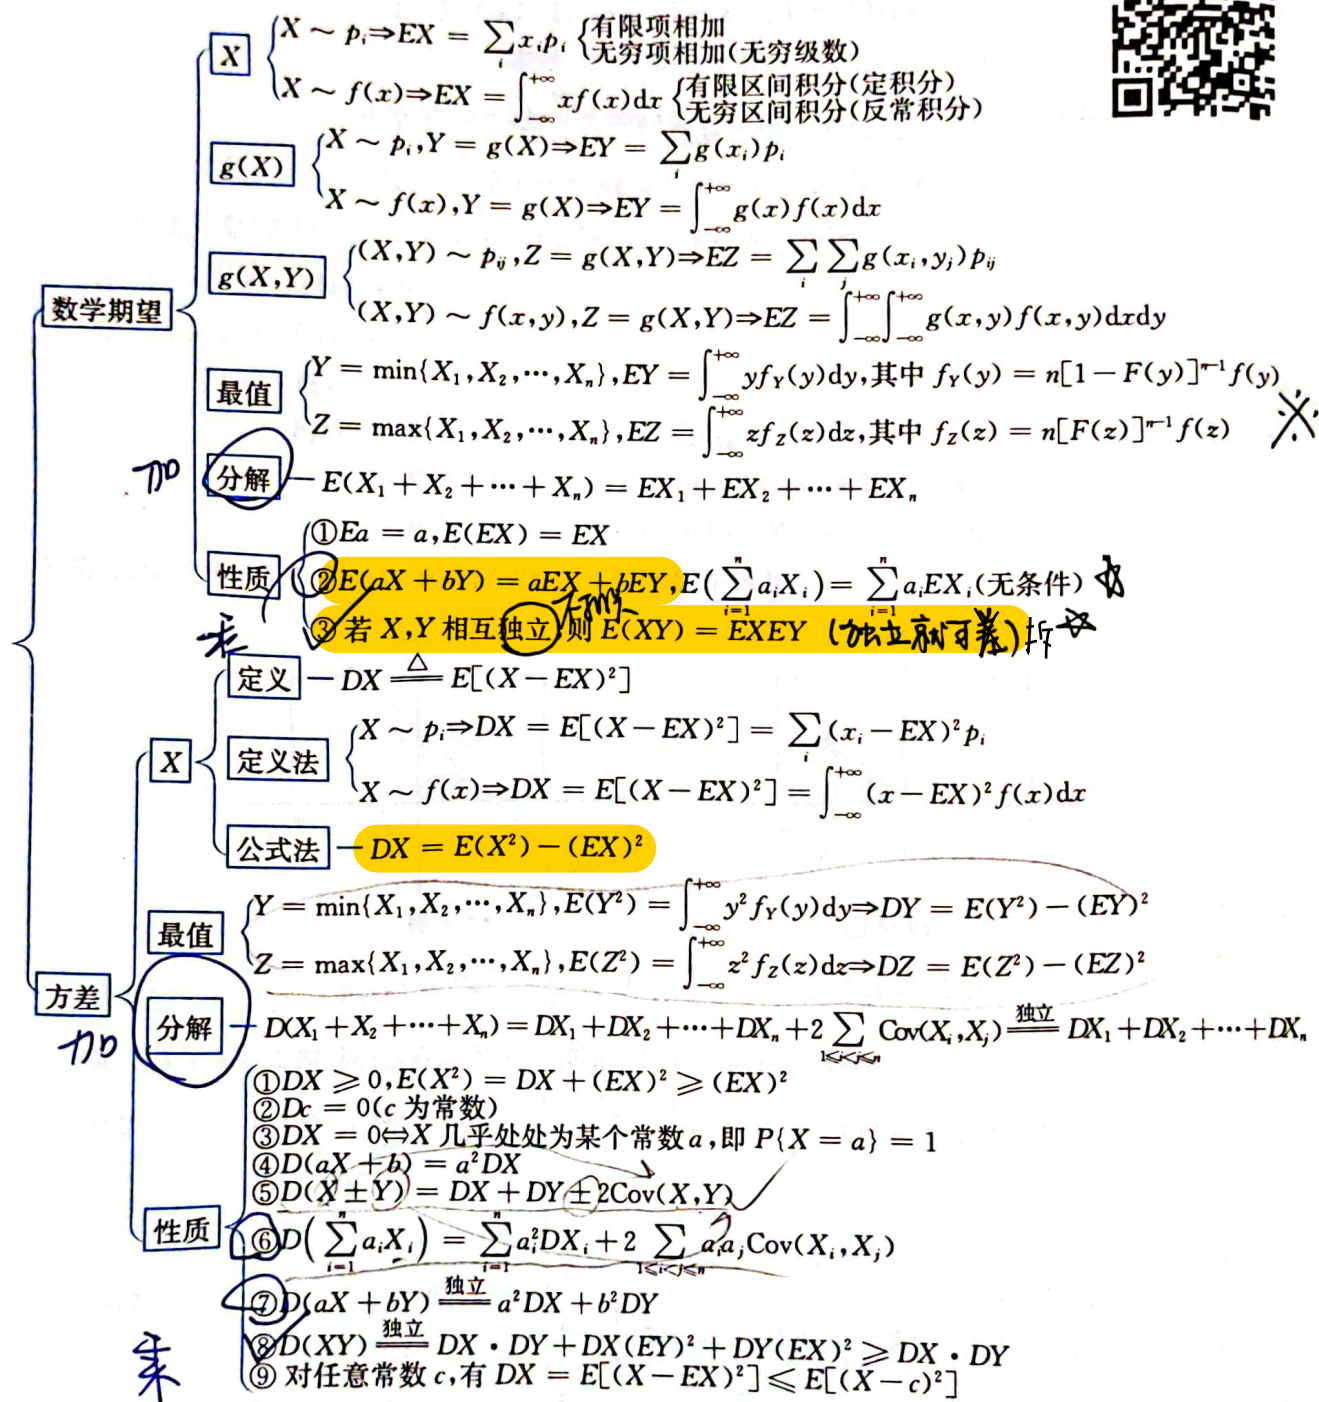 X
X ~ pᵢ⇒EX = ∑ᵢ xᵢpᵢ {有限项相加
无穷项相加(无穷级数)
X ~ f(x)⇒EX = ∫₋∞⁺∞ xf(x)dx {有限区间积分(定积分)
无穷区间积分(反常积分)
g(X)
X ~ pᵢ,Y = g(X)⇒EY = ∑ᵢ g(xᵢ)pᵢ
X ~ f(x),Y = g(X)⇒EY = ∫₋∞⁺∞ g(x)f(x)dx
g(X,Y)
(X,Y) ~ pᵢⱼ,Z = g(X,Y)⇒EZ = ∑ᵢ∑ⱼ g(xᵢ,yⱼ)pᵢⱼ
(X,Y) ~ f(x,y),Z = g(X,Y)⇒EZ = ∫₋∞⁺∞∫₋∞⁺∞ g(x,y)f(x,y)dxdy
数学期望
最值
Y = min{X₁,X₂,⋯,Xₙ},EY = ∫₋∞⁺∞ yf_Y(y)dy,其中 f_Y(y) = n[1−F(y)]ⁿ⁻¹f(y)
Z = max{X₁,X₂,⋯,Xₙ},EZ = ∫₋∞⁺∞ zf_Z(z)dz,其中 f_Z(z) = n[F(z)]ⁿ⁻¹f(z) ※
加 分解 E(X₁+X₂+⋯+Xₙ) = EX₁+EX₂+⋯+EXₙ
性质
①Ea = a,E(EX) = EX
②E(aX+bY) = aEX+bEY,E(∑ᵢ₌₁ⁿ aᵢXᵢ) = ∑ᵢ₌₁ⁿ aᵢEXᵢ(无条件) ☆
乘 ③若 X,Y 相互独立,则 E(XY) = EXEY (独立就可差)拆 ☆
定义 DX ≜ E[(X−EX)²]
X
定义法
X ~ pᵢ⇒DX = E[(X−EX)²] = ∑ᵢ (xᵢ−EX)²pᵢ
X ~ f(x)⇒DX = E[(X−EX)²] = ∫₋∞⁺∞ (x−EX)²f(x)dx
公式法 DX = E(X²)−(EX)²
最值
Y = min{X₁,X₂,⋯,Xₙ},E(Y²) = ∫₋∞⁺∞ y²f_Y(y)dy⇒DY = E(Y²)−(EY)²
Z = max{X₁,X₂,⋯,Xₙ},E(Z²) = ∫₋∞⁺∞ z²f_Z(z)dz⇒DZ = E(Z²)−(EZ)²
方差
加 分解 D(X₁+X₂+⋯+Xₙ) = DX₁+DX₂+⋯+DXₙ+2∑₁≤ᵢ<ⱼ≤ₙ Cov(Xᵢ,Xⱼ) ═独立═ DX₁+DX₂+⋯+DXₙ
性质
①DX ≥ 0,E(X²) = DX+(EX)² ≥ (EX)²
②Dc = 0(c 为常数)
③DX = 0⇔X 几乎处处为某个常数 a,即 P{X = a} = 1
④D(aX+b) = a²DX
⑤D(X±Y) = DX+DY±2Cov(X,Y)
⑥D(∑ᵢ₌₁ⁿ aᵢXᵢ) = ∑ᵢ₌₁ⁿ aᵢ²DXᵢ+2∑₁≤ᵢ<ⱼ≤ₙ aᵢaⱼCov(Xᵢ,Xⱼ)
⑦D(aX+bY) ═独立═ a²DX+b²DY
乘 ⑧D(XY) ═独立═ DX·DY+DX(EY)²+DY(EX)² ≥ DX·DY
⑨对任意常数 c,有 DX = E[(X−EX)²] ≤ E[(X−c)²]